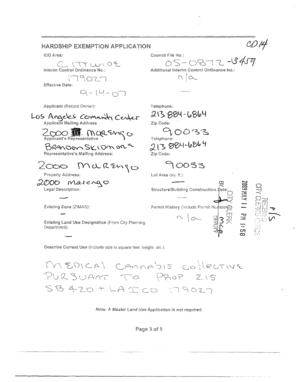 CD14
HARDSHIP EXEMPTION APPLICATION
ICO Area: Council File No.:
CITYWIDE 05-0872-S459
Interim Control Ordinance No.: Additional Interim Control Ordinance No.:
179027 n/a
Effective Date:
9-14-07
Applicant (Record Owner): Telephone:
Los Angeles Community Center 213 884-6864
Applicant Mailing Address Zip Code:
2000 Marengo 90033
Applicant's Representative Telephone:
Brandon Skidmore 213 884-6864
Representative's Mailing Address: Zip Code:
2000 Marengo 90033
Property Address: Lot Area (sq. ft.):
2000 Marengo
Legal Description: Structure/Building Construction Date:
Existing Zone (ZIMAS): Permit History (Include Permit Numbers)
n/a
Existing Land Use Designation (From City Planning
Department):
RECEIVED
CITY CLERK'S OFFICE
2009 MAY 11 PM 1:58
CITY CLERK
BY
DEPUTY
P/S
Describe Current Use (include size in square feet, height, etc.):
MEDICAL CANNABIS COLLECTIVE
PURSUANT TO PROP 215
SB 420 + LA ICO 179027
Note: A Master Land Use Application is not required.
Page 3 of 5